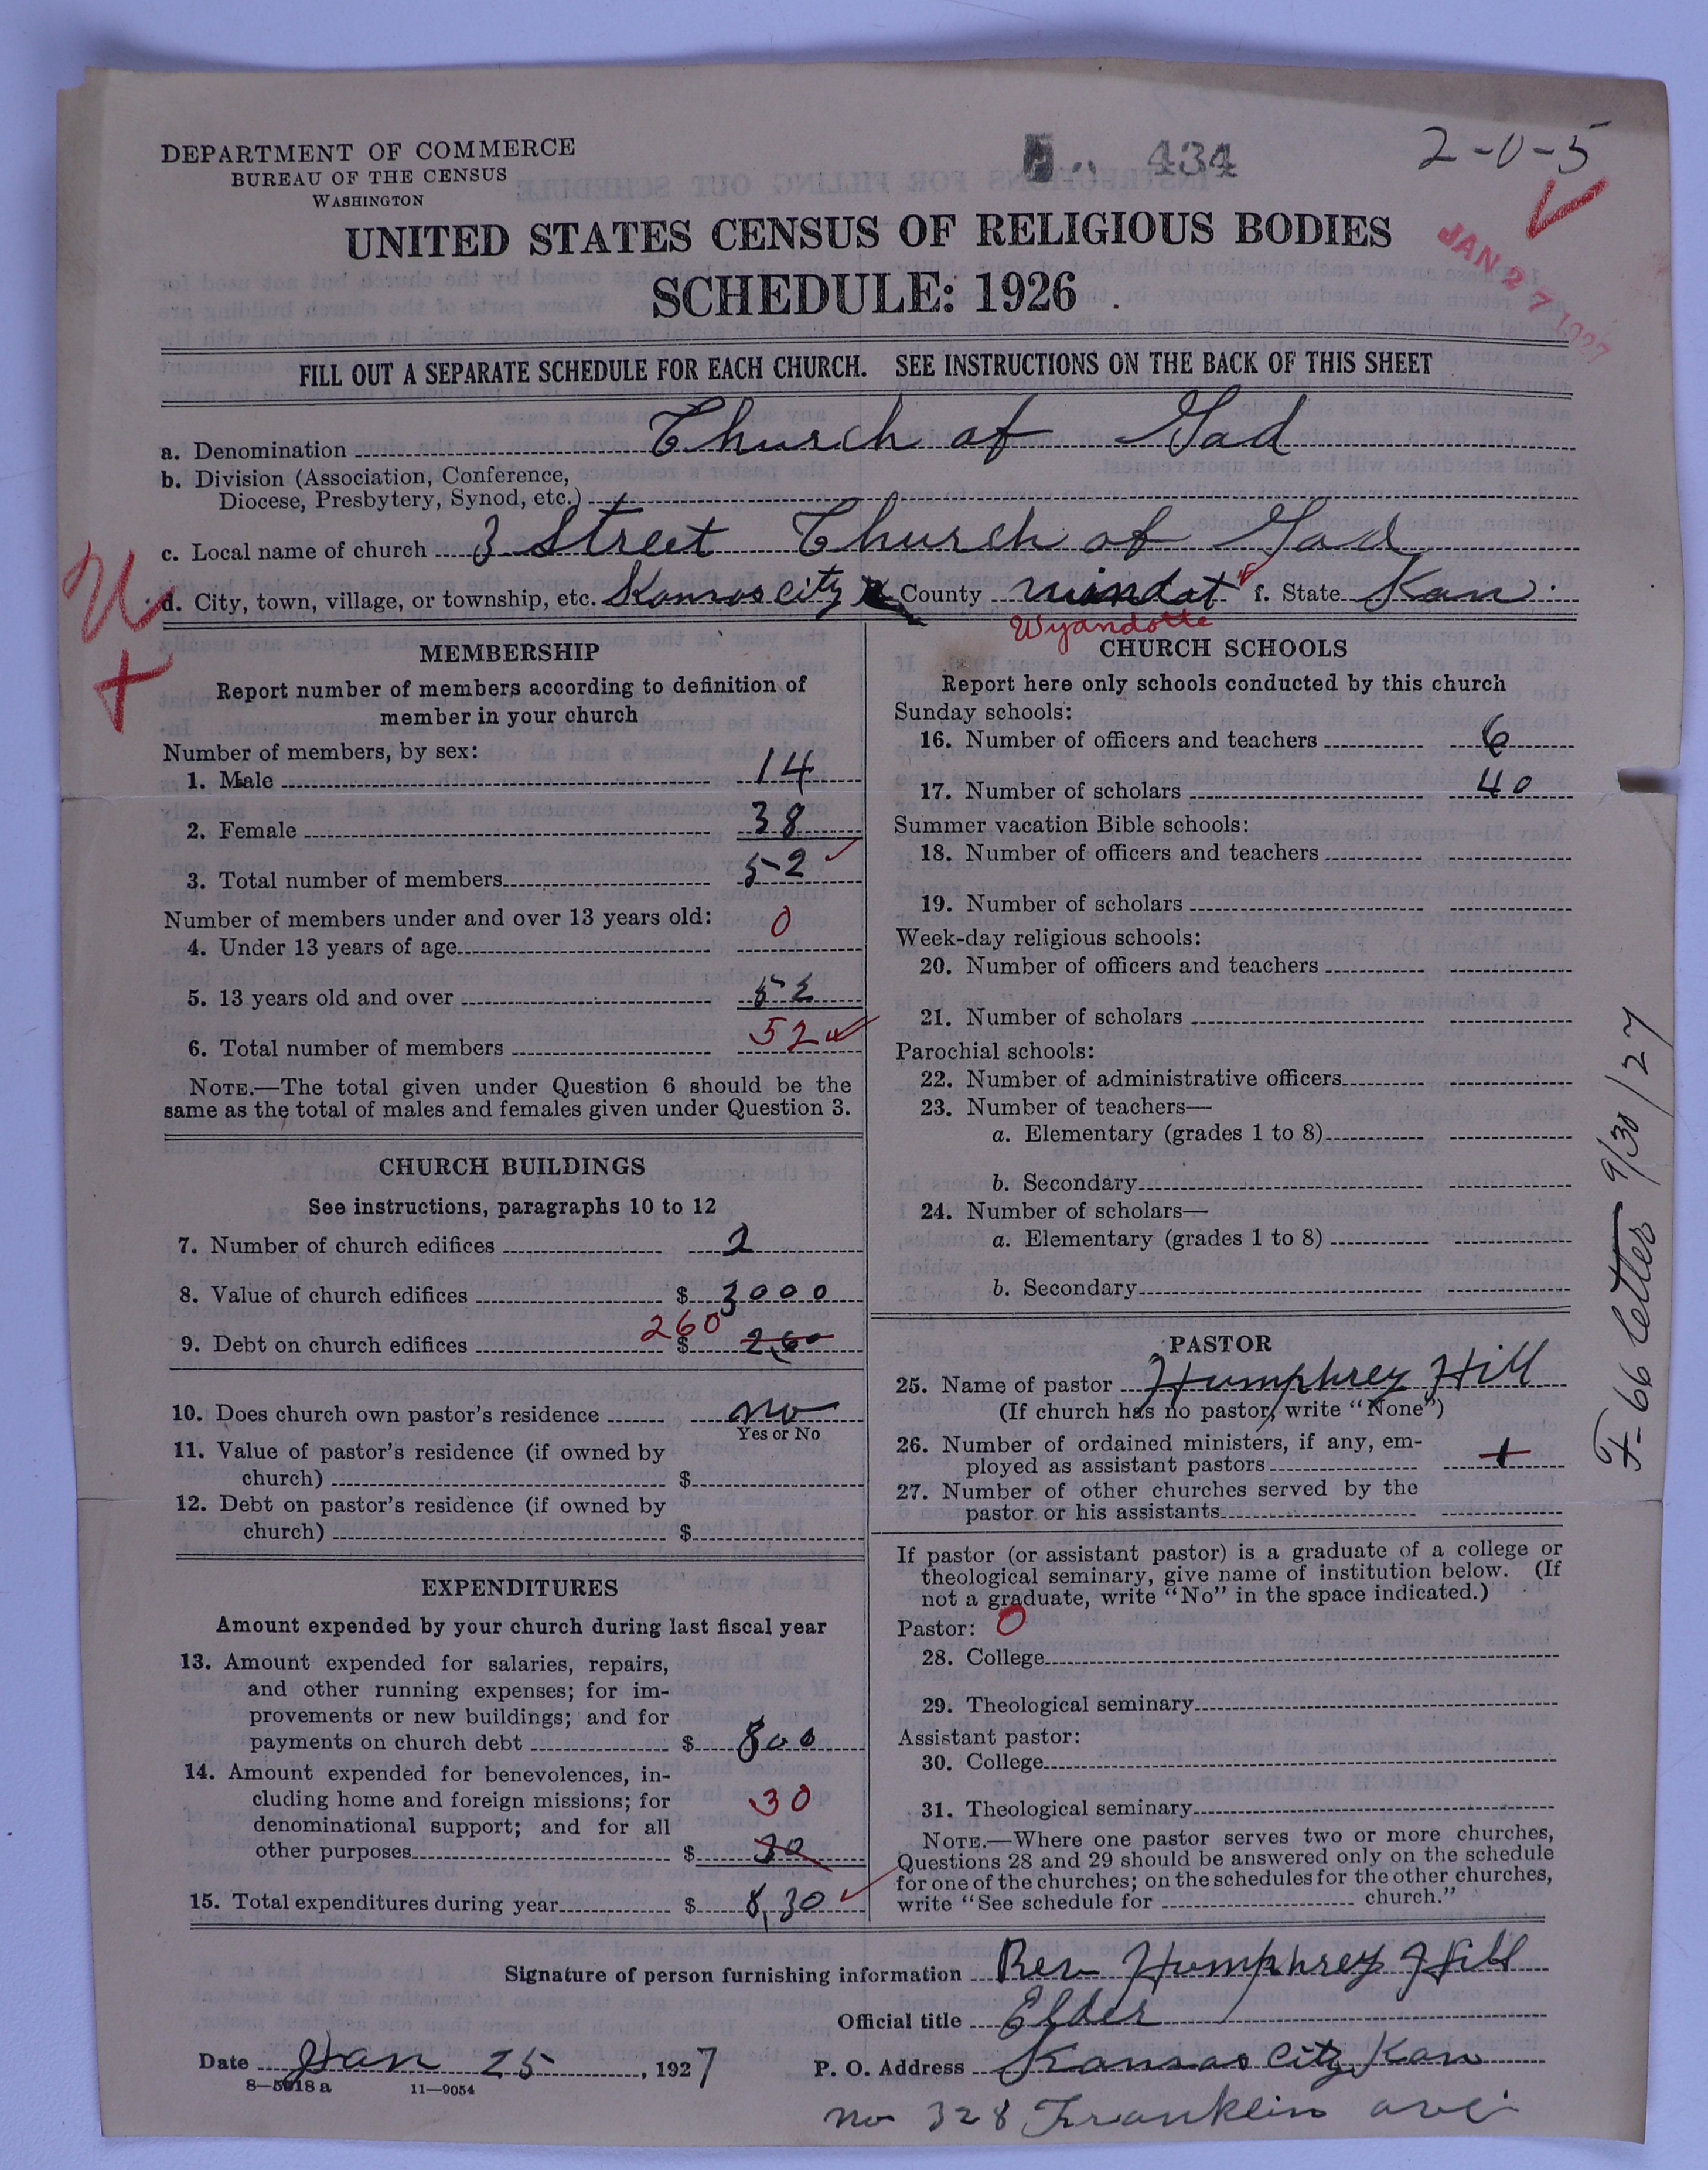 DEPARTMENT OF COMMERCE
BUREAU OF THE CENSUS
WASHINGTON
434
2-0-5
JAN 27 1927
UNITED STATES CENSUS OF RELIGIOUS BODIES
SCHEDULE: 1926
FILL OUT A SEPARATE SCHEDULE FOR EACH CHURCH. SEE INSTRUCTIONS ON THE BACK OF THIS SHEET
a. Denomination Church of God
b. Division (Association, Conference,
Diocese, Presbytery, Synod, etc.)
c. Local name of church 3 Street Church of God
d. City, town, village, or township, etc. Kansas city County windat f. State Kan.
Wyandotte
MEMBERSHIP
Report number of members according to definition of
member in your church
Number of members, by sex:
1. Male 14
2. Female 38
3. Total number of members 52
Number of members under and over 13 years old:
4. Under 13 years of age 0
5. 13 years old and over 52
6. Total number of members 52
NOTE.—The total given under Question 6 should be the
same as the total of males and females given under Question 3.
CHURCH BUILDINGS
See instructions, paragraphs 10 to 12
7. Number of church edifices
8. Value of church edifices $ 3000
9. Debt on church edifices 260 $ 260
10. Does church own pastor's residence no
Yes or No
11. Value of pastor's residence (if owned by
church) $
12. Debt on pastor's residence (if owned by
church) $
EXPENDITURES
Amount expended by your church during last fiscal year
13. Amount expended for salaries, repairs,
and other running expenses; for im-
provements or new buildings; and for
payments on church debt $ 800
14. Amount expended for benevolences, in-
cluding home and foreign missions; for
denominational support; and for all 30
other purposes $ 30
15. Total expenditures during year $ 8,30
CHURCH SCHOOLS
Report here only schools conducted by this church
Sunday schools:
16. Number of officers and teachers 6
17. Number of scholars 40
Summer vacation Bible schools:
18. Number of officers and teachers
19. Number of scholars
Week-day religious schools:
20. Number of officers and teachers
21. Number of scholars
Parochial schools:
22. Number of administrative officers
23. Number of teachers—
a. Elementary (grades 1 to 8)
b. Secondary
24. Number of scholars—
a. Elementary (grades 1 to 8)
b. Secondary
PASTOR
25. Name of pastor Humphrey Hill
(If church has no pastor, write "None")
26. Number of ordained ministers, if any, em-
ployed as assistant pastors
27. Number of other churches served by the
pastor or his assistants
If pastor (or assistant pastor) is a graduate of a college or
theological seminary, give name of institution below. (If
not a graduate, write "No" in the space indicated.)
Pastor: 0
28. College
29. Theological seminary
Assistant pastor:
30. College
31. Theological seminary
NOTE.—Where one pastor serves two or more churches,
Questions 28 and 29 should be answered only on the schedule
for one of the churches; on the schedules for the other churches,
write "See schedule for church."
F-66 letter 9/30/27
Signature of person furnishing information Rev Humphrey Hill
Official title Elder
Date Jan 25, 1927 P. O. Address Kansas City Kan
8—5018a 11—9054
no 328 Franklin ave.